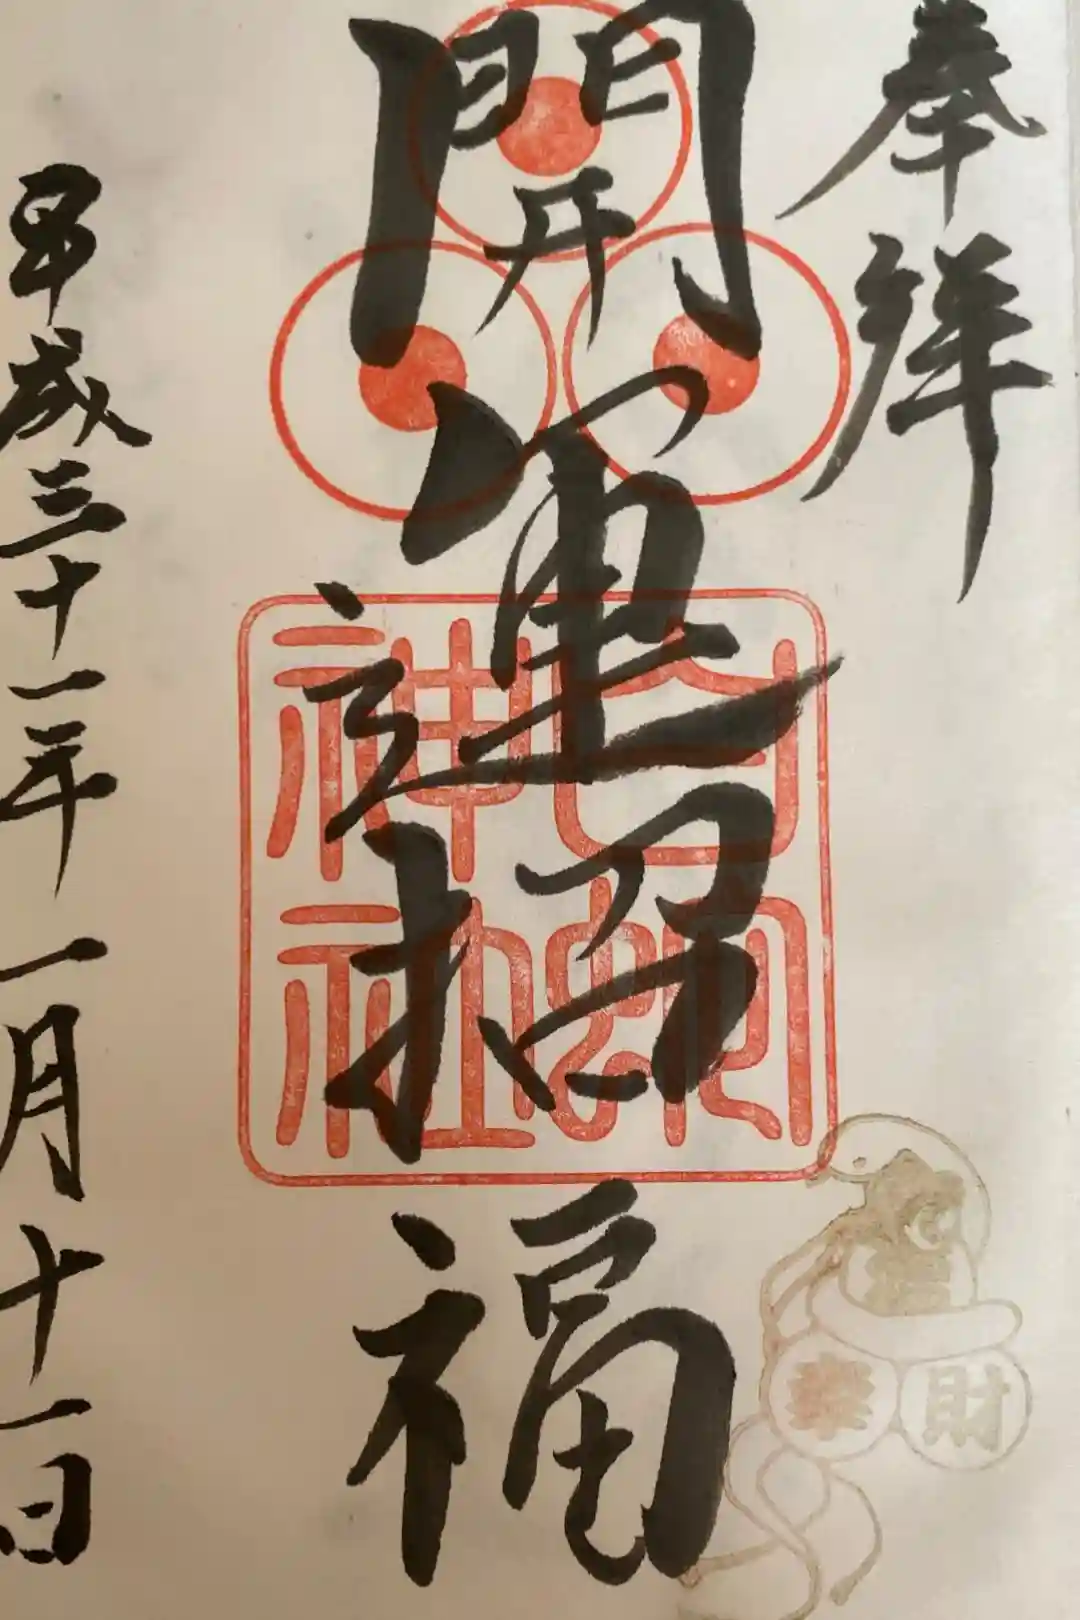 奉拝
開運招福
白蛇
神社
平成三十一年一月十一日
幸
財